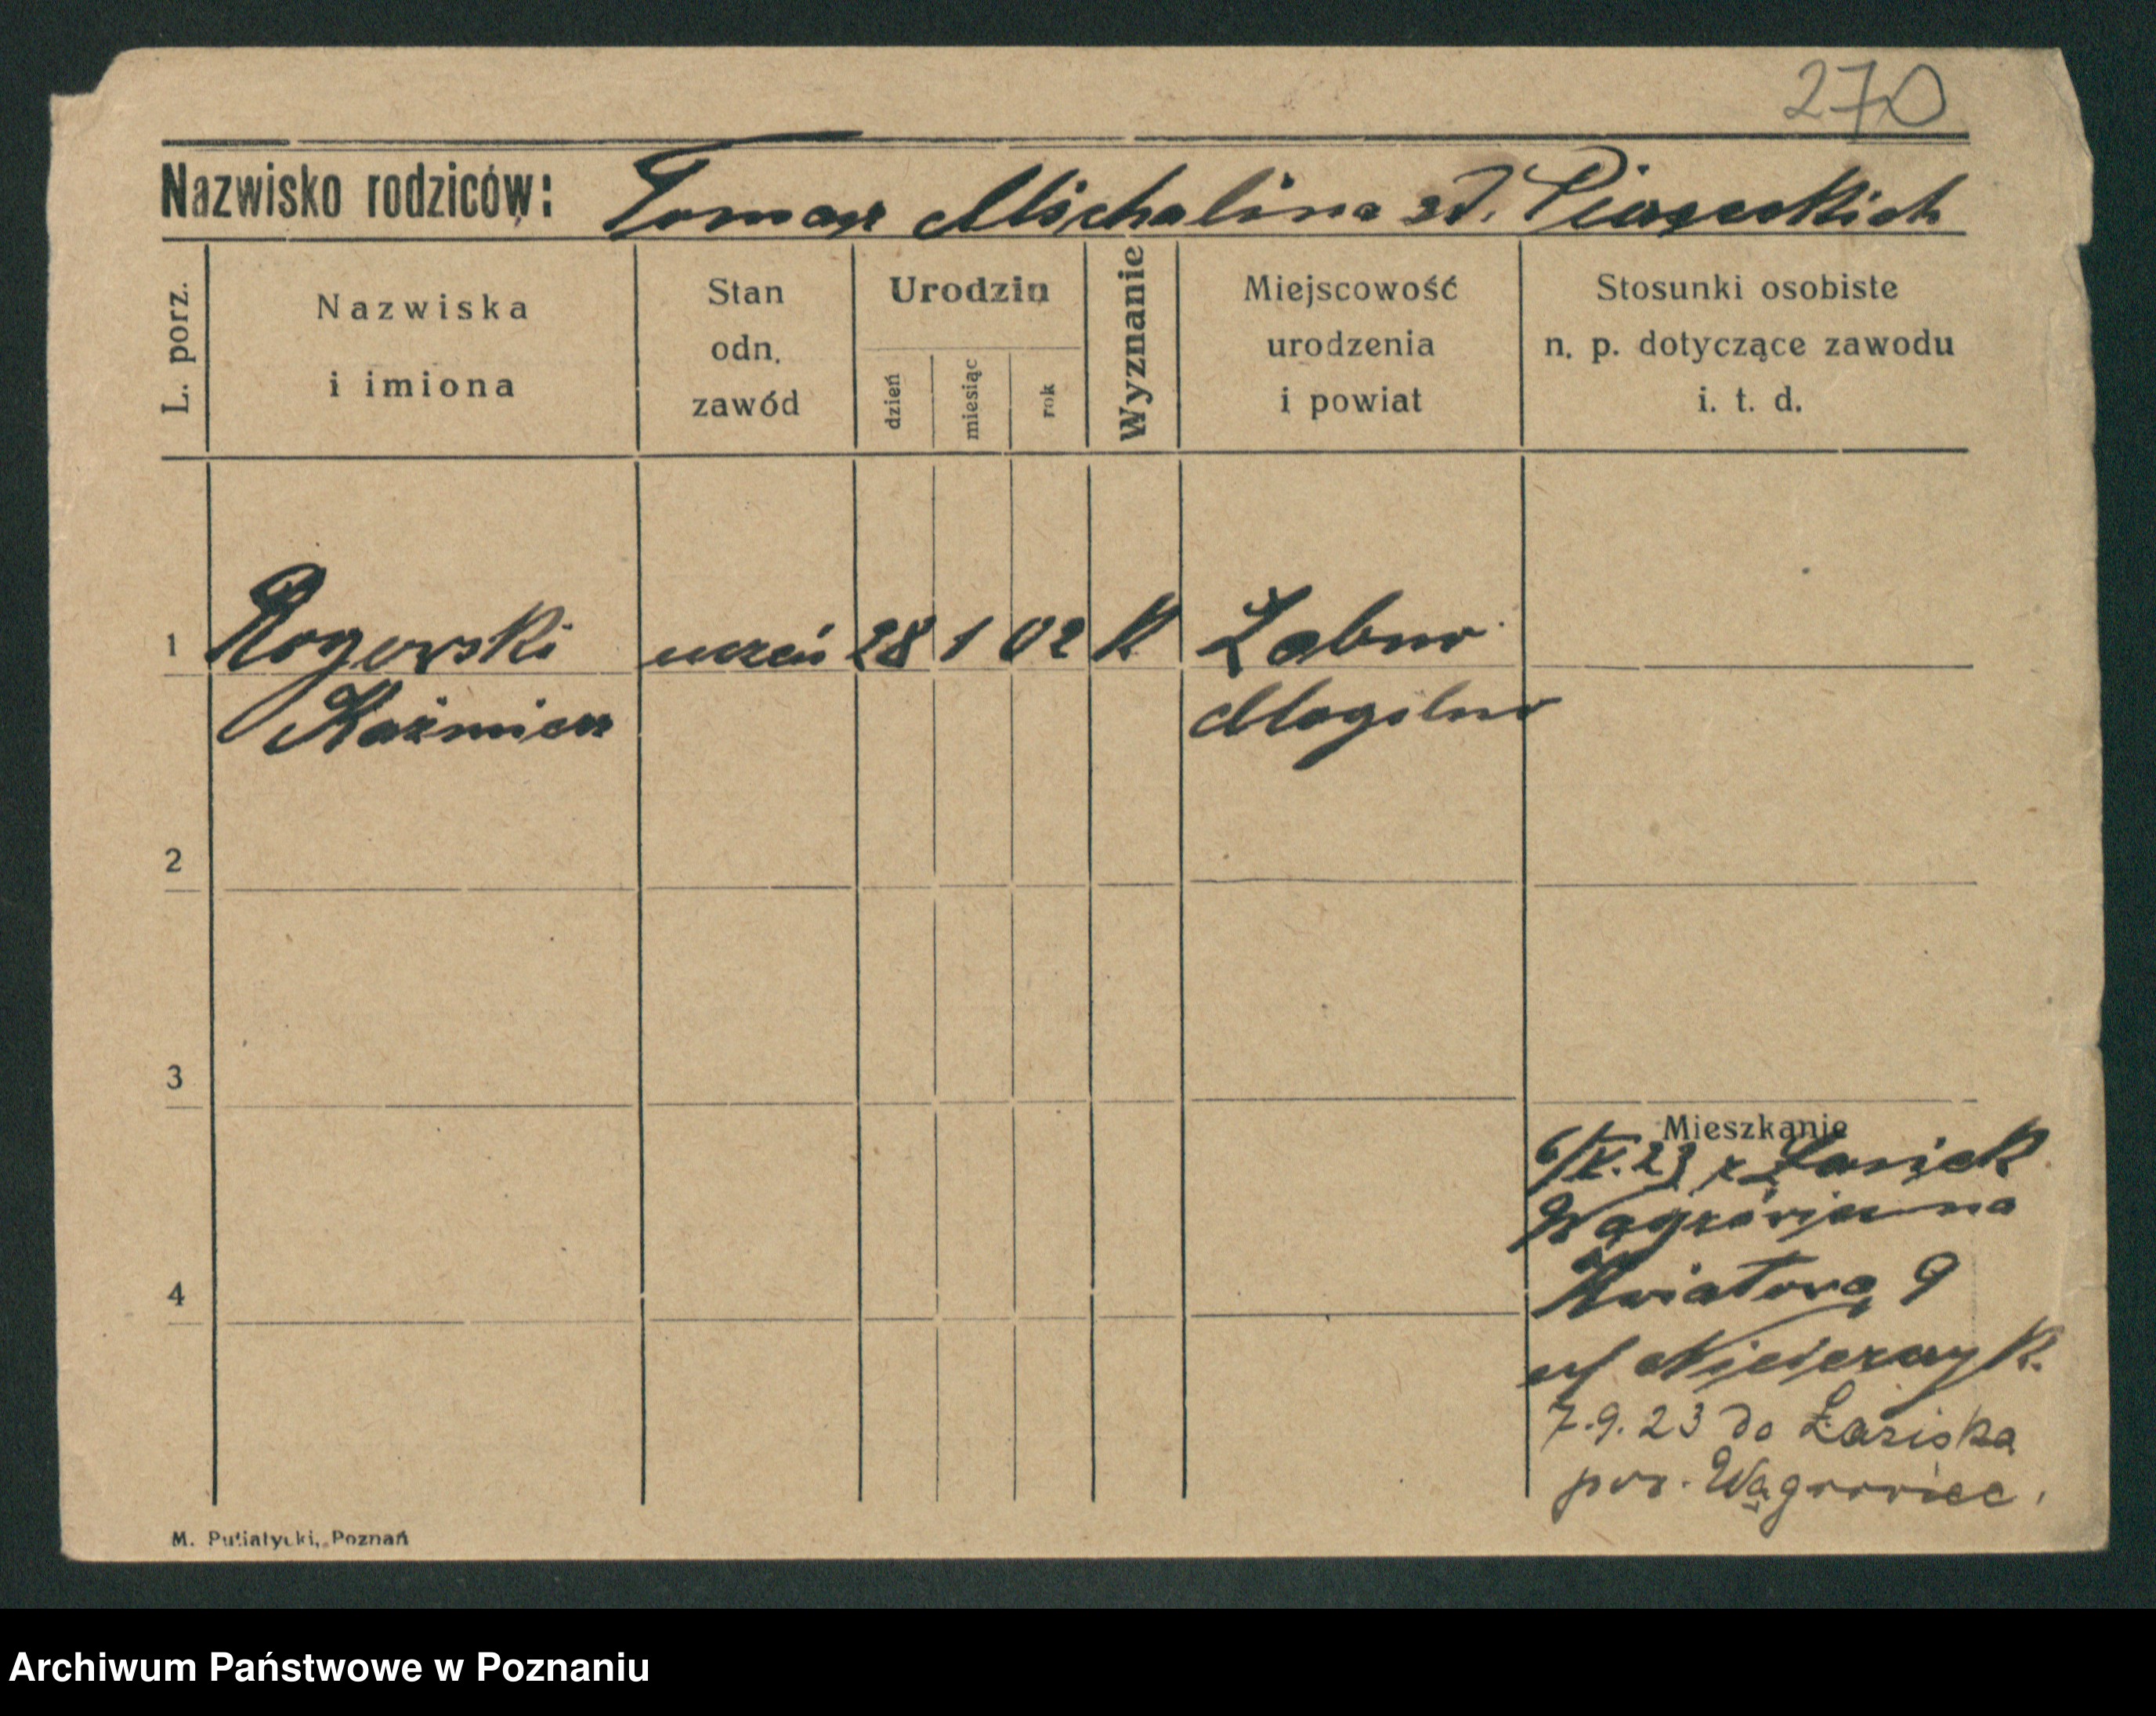 270
Nazwisko rodziców: Tomasz Michalina zd. Piaseckich
L. porz.
Nazwiska
i imiona
Stan
odn.
zawód
Urodzin
dzień
miesiąc
rok
Wyznanie
Miejscowość
urodzenia
i powiat
Stosunki osobiste
n. p. dotyczące zawodu
i. t. d.
1 Rogowski uczeń 28 1 02 K Żabno
Kaźmierz Mogilno
2
3
Mieszkanie
23 z
na
4 Kwiatowa 9
7.9.23 do Łaziska
pow. Wągrowiec,
M. Putiatycki, Poznań
Archiwum Państwowe w Poznaniu